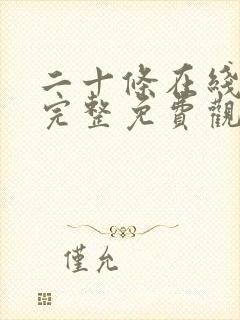 二十條在綫
完整免費觀
僅允